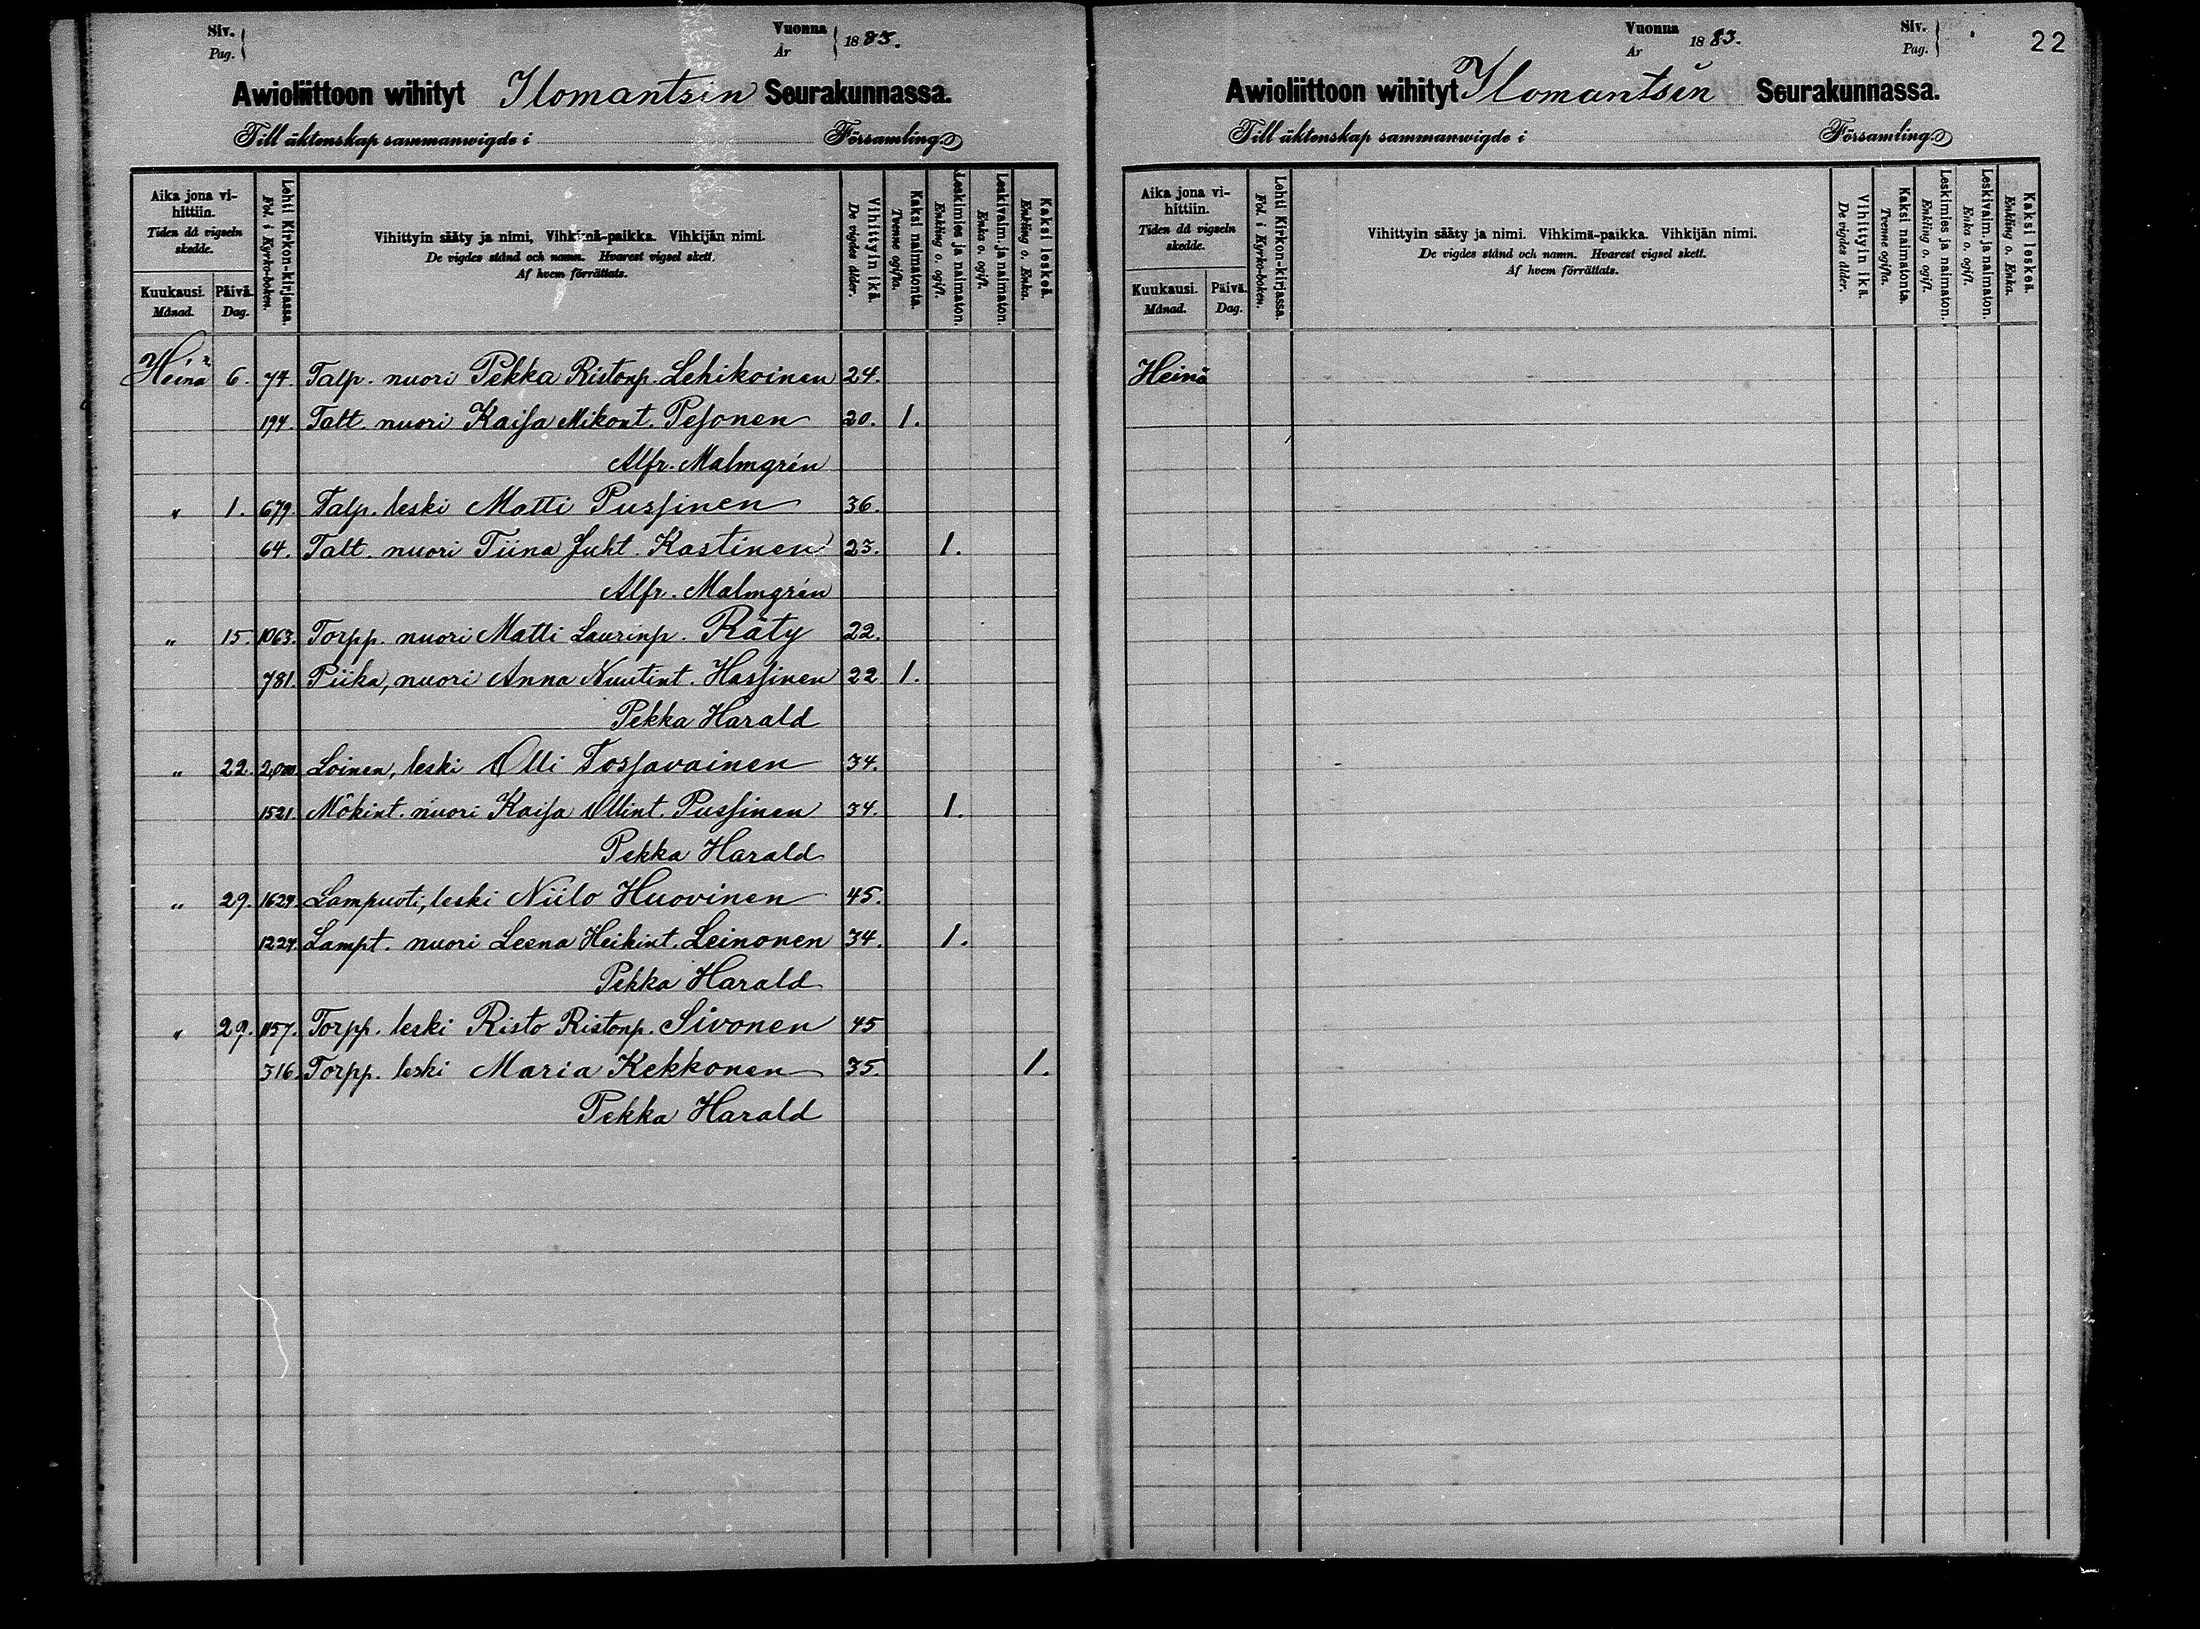 Siv.
Pag.
Vuonna
År
1883.
Awioliittoon wihityt Ilomantsin Seurakunnassa.
Till äktenskap sammanwigde i Församling.
Aika jona vihittiin.
Tiden då vigseln skedde.
Kuukausi.
Månad.
Päivä.
Dag.
Lehti Kirkon-kirjassa.
Fol. i Kyrko-boken.
Vihittyin sääty ja nimi. Vihkimä-paikka. Vihkijän nimi.
De vigdes stånd och namn. Hvarest vigsel skett.
Af hvem förrättats.
Vihittyin ikä.
De vigdes ålder.
Kaksi naimatonta.
Tvenne ogifta.
Leskimies ja naimaton.
Enkling o. ogift.
Leskivaim. ja naimaton.
Enka o. ogift.
Kaksi leskeä.
Enkling o. Enka.
Heinä 6. 74. Talp. nuori Pekka Ristonp. Lehikoinen 24.
194. Talt. nuori Kaisa Mikont. Pesonen 20. 1.
Alfr. Malmgrén
" 1. 679. Talp. leski Matti Purssinen 36.
64. Talt. nuori Tiina Juht. Kastinen 23. 1.
Alfr. Malmgrén
" 15. 1063. Torpp. nuori Matti Laurinp. Räty 22.
781. Piika, nuori Anna Nuutint. Hassinen 22 1.
Pekka Harald
" 22. Loinen, leski Olli Torssavainen 34.
1521. Mökint. nuori Kaisa Ollint. Pussinen 34. 1.
Pekka Harald
" 29. 1624. Lampuoti, leski Niilo Huovinen 45.
1224. Lampt. nuori Leena Heikint. Leinonen 34. 1.
Pekka Harald
" 29. 1157. Torpp. leski Risto Ristonp. Sivonen 45
316. Torpp. leski Maria Kekkonen 35. 1.
Pekka Harald
Vuonna
År
1883.
Siv.
Pag.
22
Awioliittoon wihityt Ilomantsin Seurakunnassa.
Till äktenskap sammanwigde i Församling.
Aika jona vihittiin.
Tiden då vigseln skedde.
Kuukausi.
Månad.
Päivä.
Dag.
Lehti Kirkon-kirjassa.
Fol. i Kyrko-boken.
Vihittyin sääty ja nimi. Vihkimä-paikka. Vihkijän nimi.
De vigdes stånd och namn. Hvarest vigsel skett.
Af hvem förrättats.
Vihittyin ikä.
De vigdes ålder.
Kaksi naimatonta.
Tvenne ogifta.
Leskimies ja naimaton.
Enkling o. ogift.
Leskivaim. ja naimaton.
Enka o. ogift.
Kaksi leskeä.
Enkling o. Enka.
Heinä